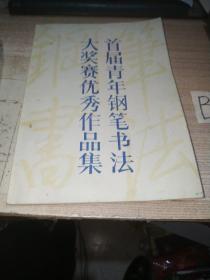 首届青年钢笔书法
大奖赛优秀作品集